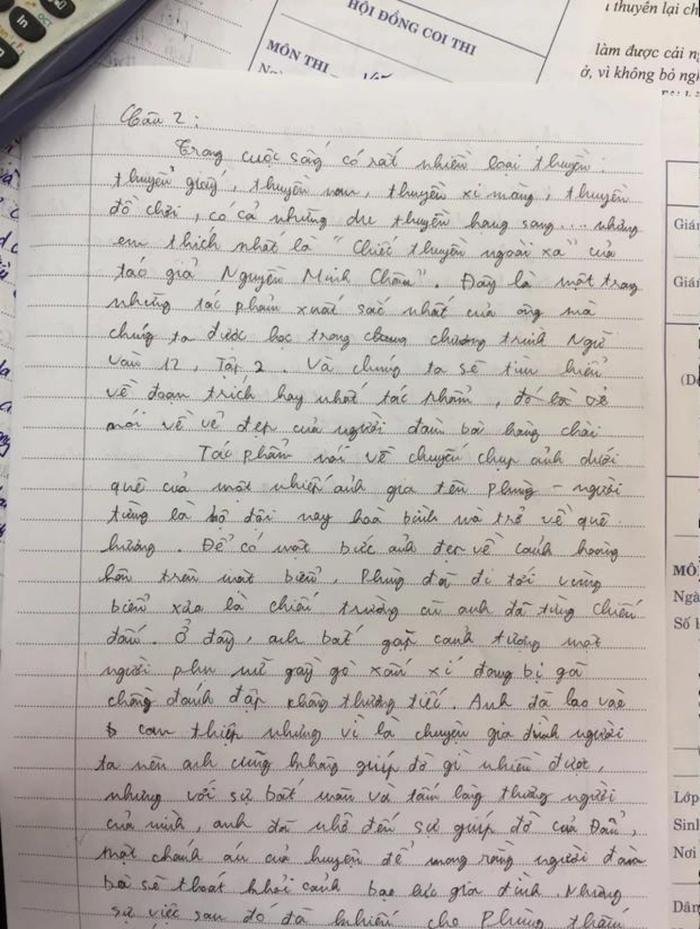 HỘI ĐỒNG COI THI
MÔN THI
ı thuyền lại ch
làm được cái ng
ở, vì không bỏ ngh
Câu 2 :
Trong cuộc sống có rất nhiều loại thuyền :
thuyền giấy, thuyền nan, thuyền xi măng, thuyền
đồ chơi, có cả những du thuyền hạng sang .... nhưng
em thích nhất là " Chiếc thuyền ngoài xa" của
táo giả Nguyễn Minh Châu". Đây là một trong
những tác phẩm xuất sắc nhất của ông mà
chúng ta được học trong chương trình Ngữ
văn 12, Tập 2. Và chúng ta sẽ tìm hiểu
về đoạn trích hay nhất tác phẩm, đó là
nói về vẻ đẹp của người đàn bà hàng chài
Tác phẩm nói về chuyến chụp ảnh dưới
quê của một nhiếp ảnh gia tên Phùng - người
từng là bộ đội nay hoà bình và trở về quê
hương. Để có một bức ảnh đẹp về cảnh hoàng
hôn trên mặt biển, Phùng đã đi tới vùng
biển xưa là chiến trường cũ anh đã từng chiến
đấu. Ở đây, anh bắt gặp cảnh tượng một
người phụ nữ gầy gò xấu xí đang bị gã
chồng đánh đập không thương tiếc. Anh đã lao vào
can thiệp nhưng vì là chuyện gia đình người
ta nên anh cũng không giúp đỡ gì nhiều được,
nhưng với sự bất mãn và tấm lòng thương người
của mình, anh đã nhờ đến sự giúp đỡ của Đẩu,
một chánh án của huyện để mong rằng người đàn
bà sẽ thoát khỏi cảnh bạo lực gia đình. Nhưng
sự việc sau đó đã khiến cho Phùng thấm
Giám
Giám
(Đ
MÔ
Ngà
Số b
Lớp
Sinh
Nơi
Dân